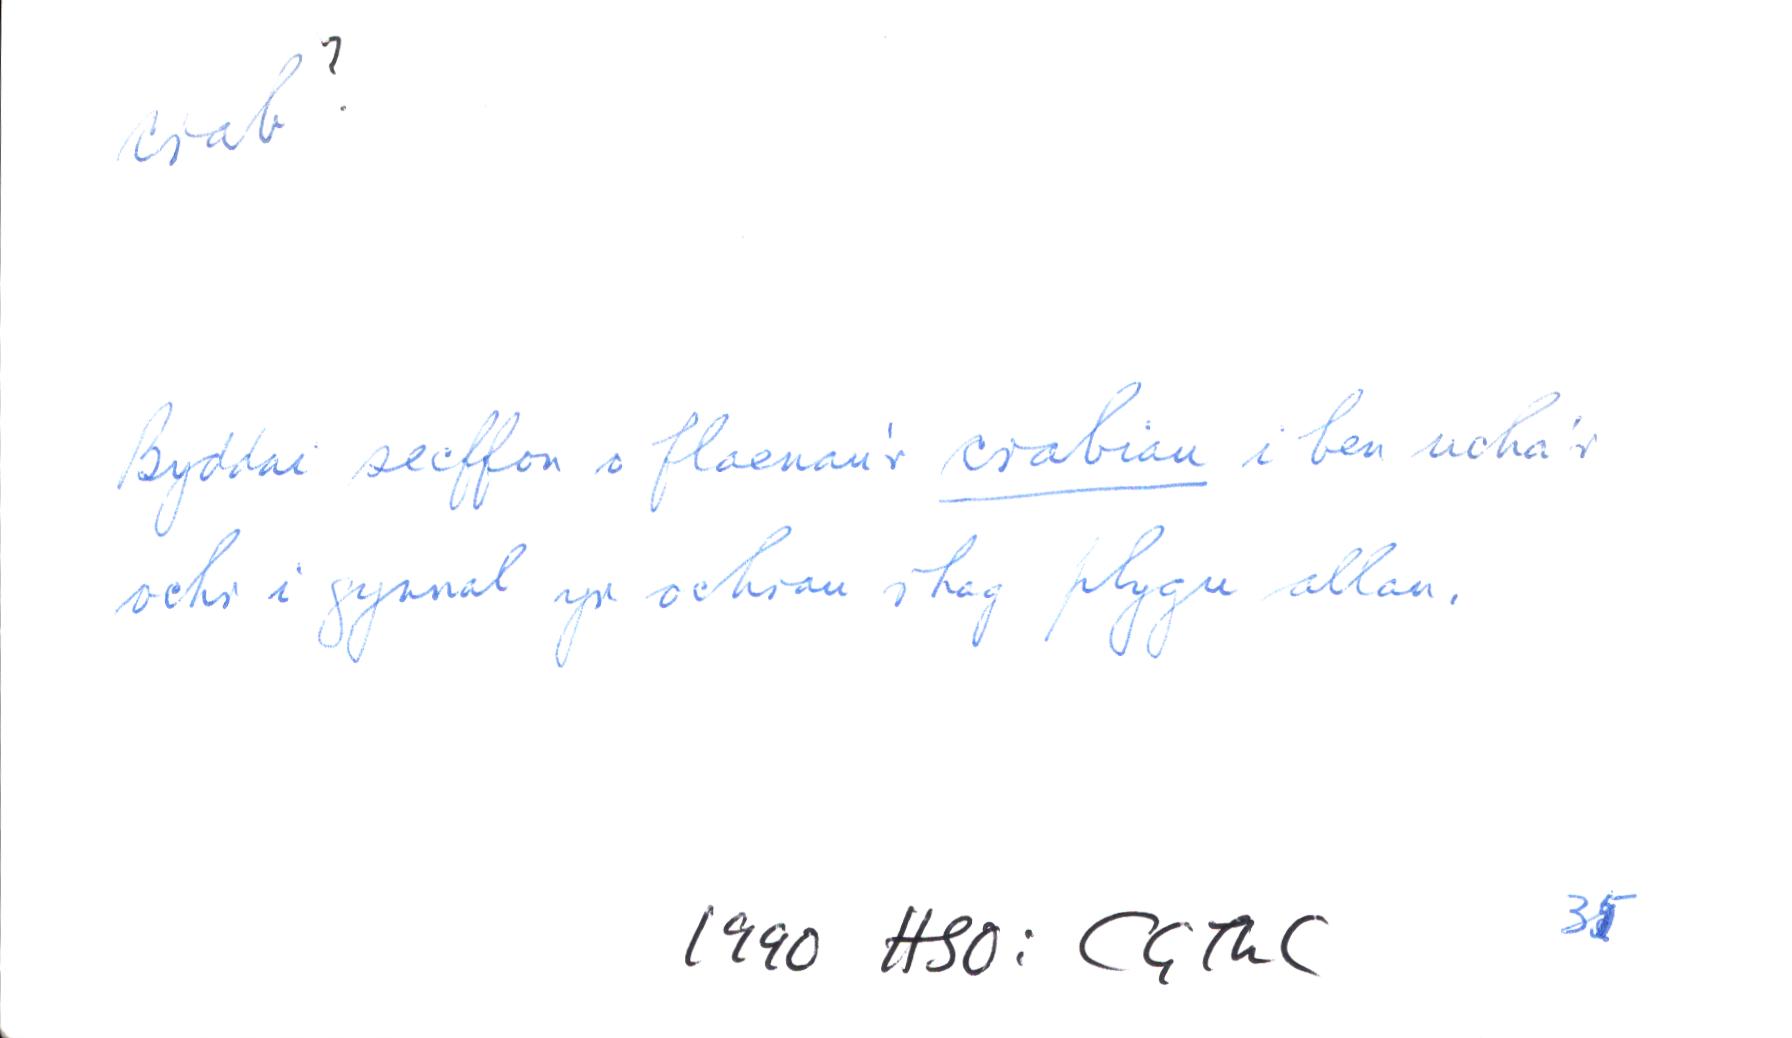 crab?
Byddai secffon o flaenau'r crabiau i ben ucha'r
ochr i gynnal yr ochrau rhag plygu allan.
1990 HSO: CGThC 35